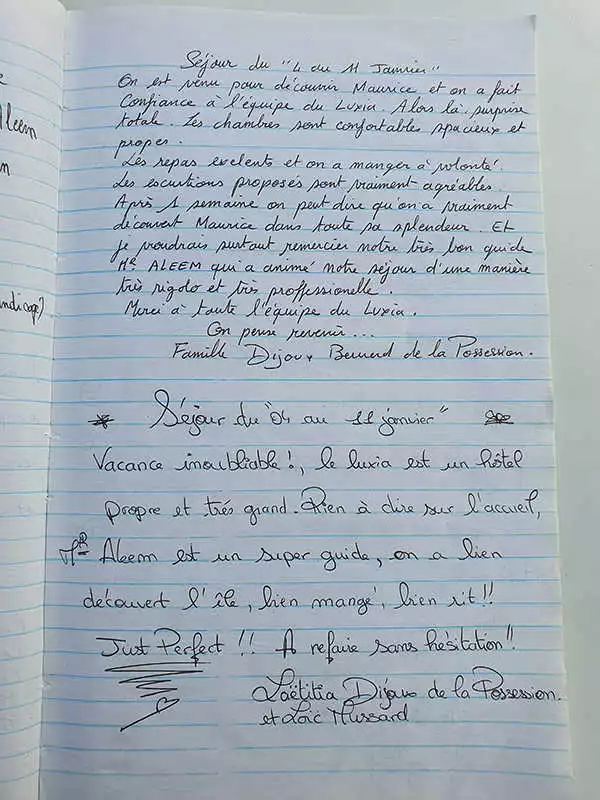 Séjour du "4 au 11 Janvier"
On est venu pour découvrir Maurice et on a fait
Confiance à l'équipe du Luxia. Alors là, surprise
totale. Les chambres sont confortables spacieux et
propes.
Les repas exelents et on a manger à volonté.
Les escurtions proposés sont vraiment agréables.
Après 1 semaine on peut dire qu'on a vraiment
découvert Maurice dans toute sa splendeur. Et
je voudrais surtout remercier notre très bon guide
Mr ALEEM qui a animé notre séjour d'une manière
très rigolo et très proffessionelle.
Merci à toute l'équipe du Luxia.
On pense revenir...
Famille Dijoux Bernard de la Possession.
Séjour du "04 au 11 janvier"
Vacance inoubliable!, le luxia est un hôtel
propre et trés grand. Rien à dire sur l'accueil,
Mr Aleem est un super guide, on a bien
découvert l'île, bien mangé, bien rit!!
Just Perfect!! A refaire sans hésitation!!
Laëtitia Dijoux de la Possession.
et Loïc Mussard
Aleem
n
andicape)